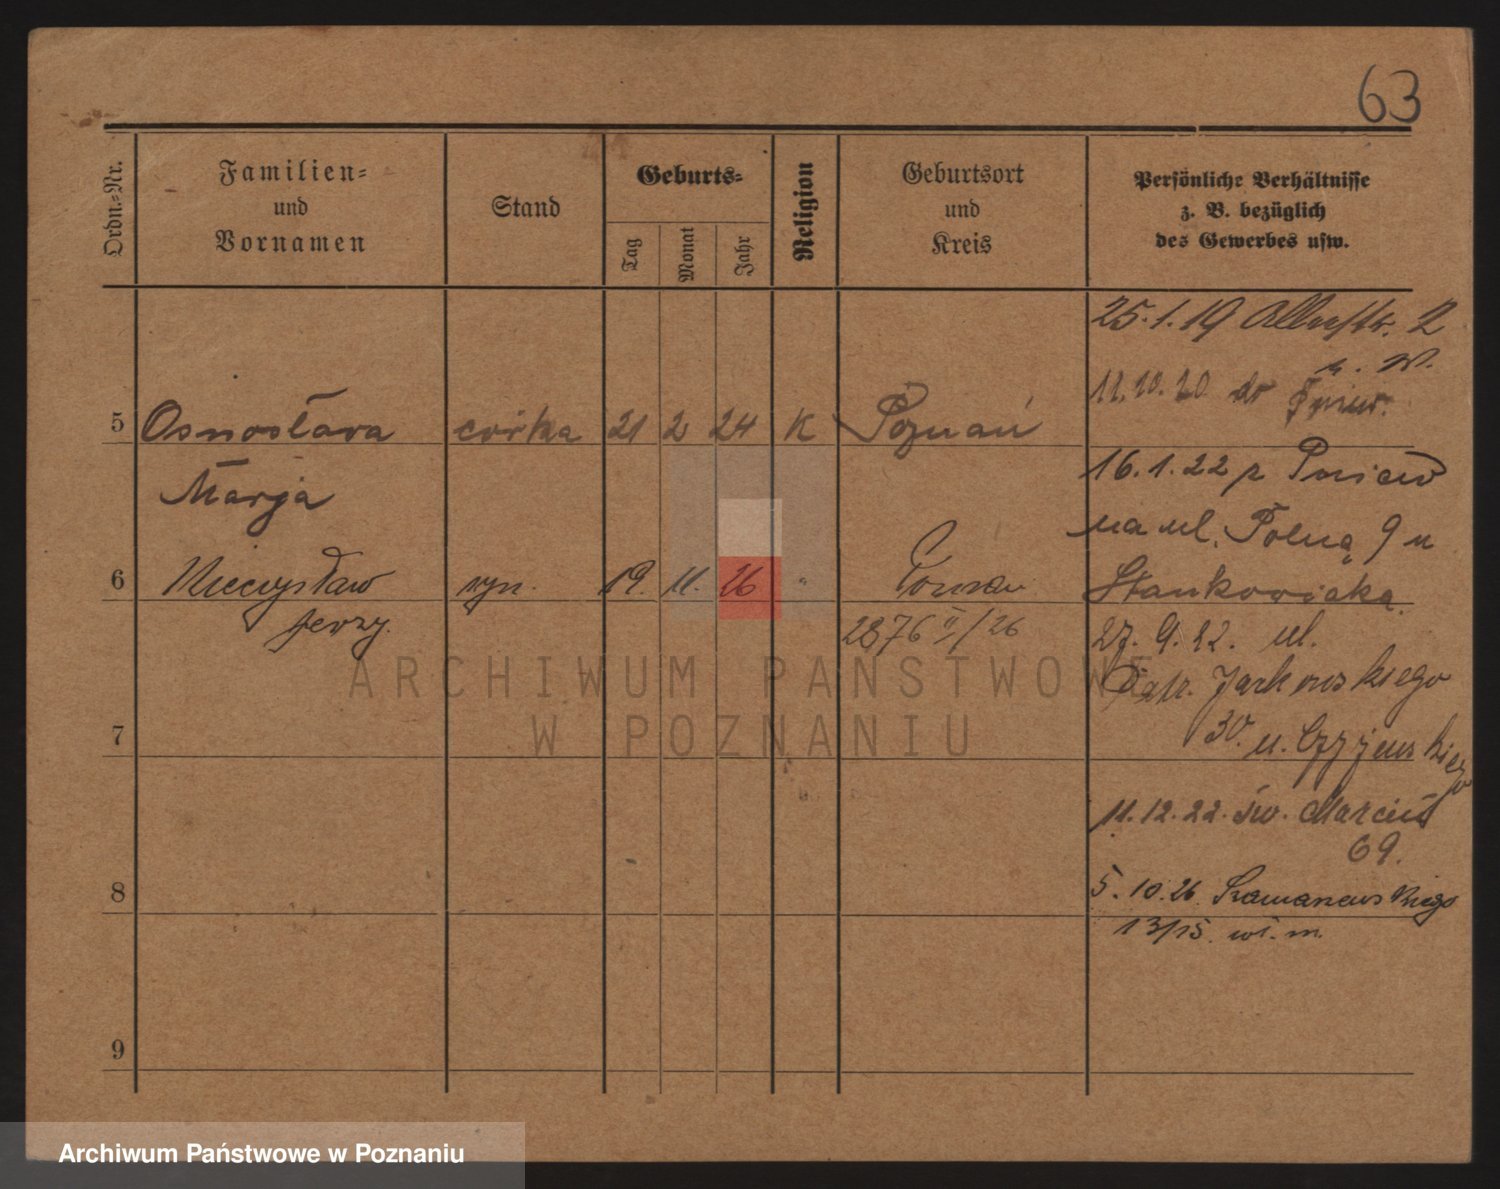 63
Ordn.-Nr.
Familien-
und
Vornamen
Stand
Geburts-
Tag
Monat
Jahr
Religion
Geburtsort
und
Kreis
Persönliche Verhältnisse
z. B. bezüglich
des Gewerbes usw.
25.1.19 2
11.10.20 do
5 Osnosława córka 21 2 24 K Poznań
Marja
16.1.22 z Pniew
na ul. Polną 9 u
Stankowiaka.
6 Mieczysław syn. 19. 11. 26 "
Jerzy.
2876 II/26
27.9.22. ul.
Jackowskiego
30. u.
7
11.12.22. św. Marcin
69.
8
5.10.26 Szamarzewskiego
13/15. wł. m.
9
ARCHIWUM PAŃSTWOWE
W POZNANIU
Archiwum Państwowe w Poznaniu